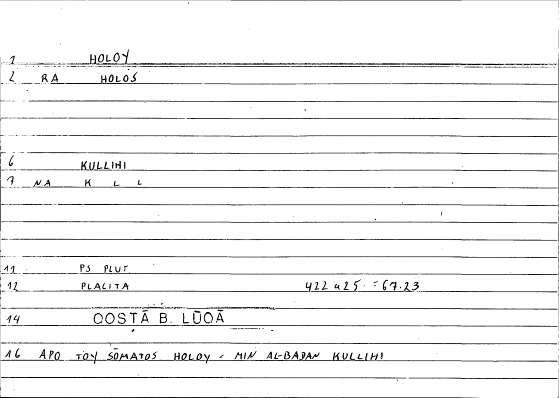 1 HOLOY
2 RA HOLOS
6 KULLIHI
7 NA K L L
11 PS PLUT
12 PLACITA 422 a25 = 67.23
14 QOSTĀ B. LŪQĀ
16 APO TOY SŌMATOS HOLOY = MIN AL-BADAN KULLIHI